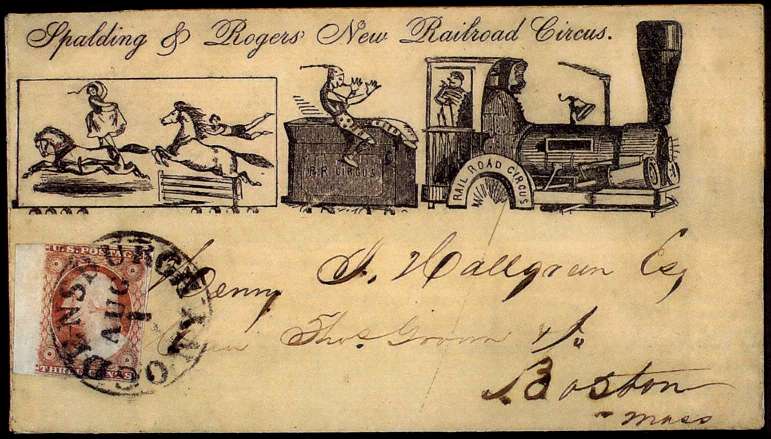 Spalding & Rogers' New Railroad Circus.
R.R CIRCUS
RAIL ROAD CIRCUS
U.S. POSTAGE
THREE CENTS
OGDENSBURGH N.Y.
AUG
1
Henny J. Hallgreen Esq
Thos Groom
Boston
Mass